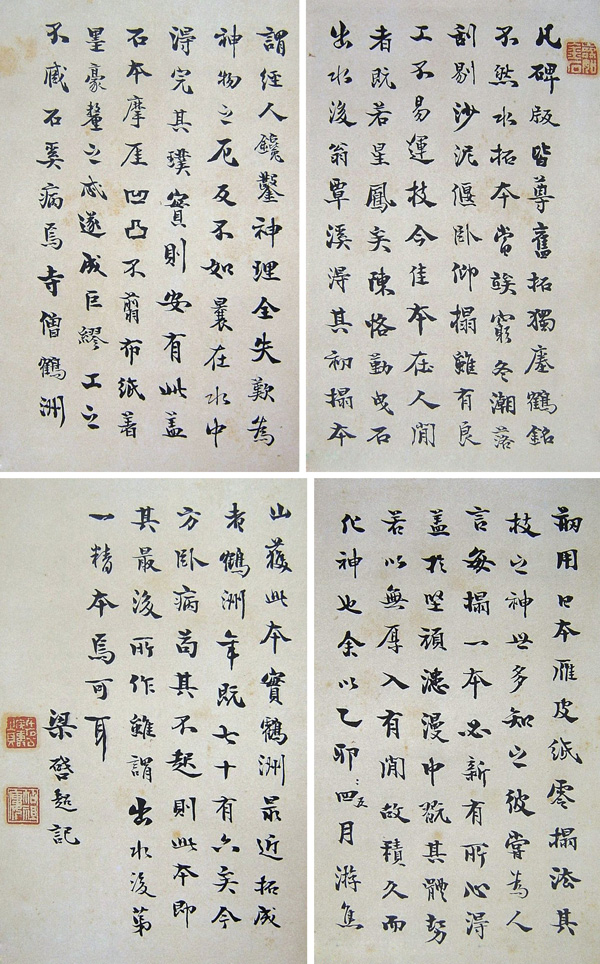 凡碑版皆尊舊拓獨瘞鶴銘
不然水拓本當竢窮冬潮落
刮剔沙泥偃卧仰搨雖有良
工不易運技今佳本在人間
者既若星鳳矣陳恪勤曳石
出水後翁覃溪得其初搨本
謂經人鑱鑿神理全失歎為
神物之厄反不如曩在水中
得完其璞實則安有此蓋
石本摩厓凹凸不翦布紙著
墨豪釐之忒遂成巨繆工之
不臧石奚病焉寺僧鶴洲
剏用日本雁皮紙零搨法其
技之神世多知之彼嘗為人
言每搨一本必新有所心得
蓋於堅頑漶漫中翫其體勢
若以無厚入有間故積久而
化神也余以乙卯四五月游焦
山獲此本實鶴洲最近拓成
者鶴洲年既七十有六矣今
方卧病苟其不起則此本即
其最後所作雖謂出水後第
一精本焉可耳
梁啓超記